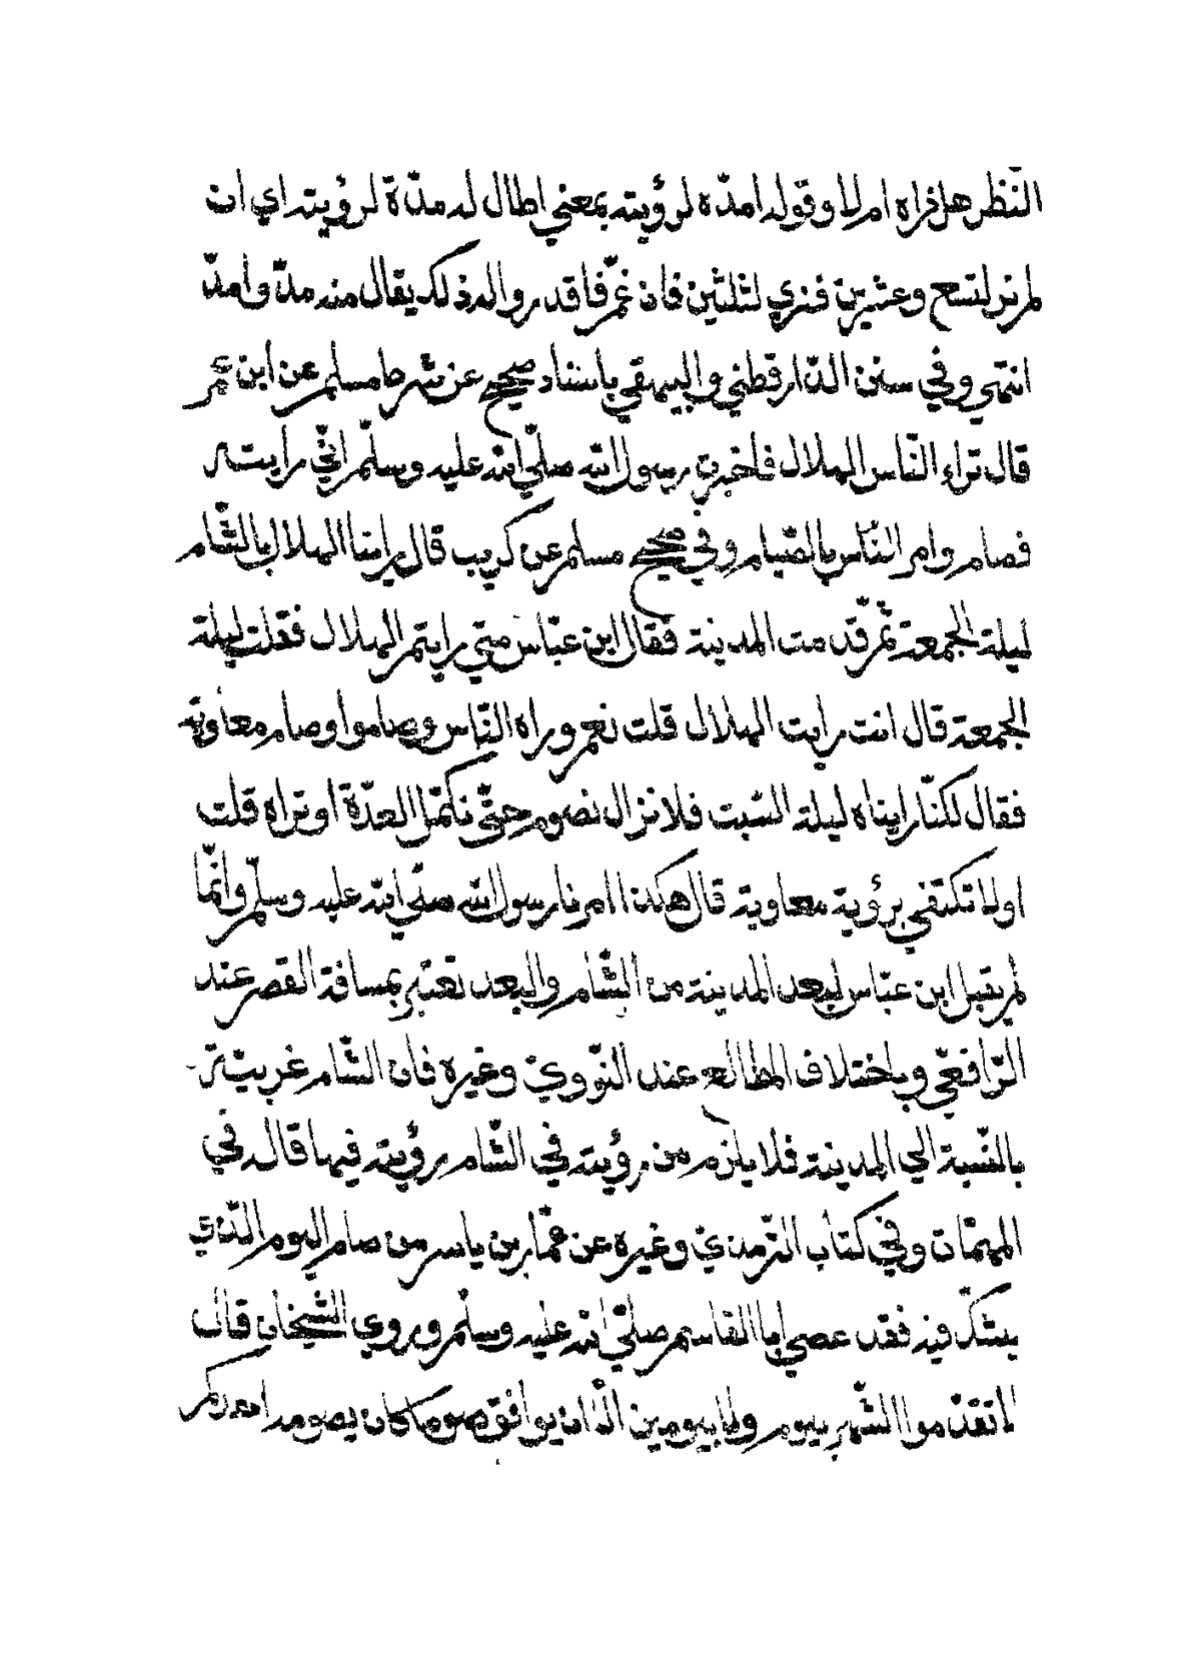 النّظر هل نراه ام لا وقوله امدّه لرؤيته بمعني اطال له مدّة لرؤيته اي ان
لم نر لتسع وعشرين فنري لثلثين فان غمّ فاقدروا له ذلك يقال منه مدّ وامدّ
انتهي وفي سنن الدّارقطني والبيهقي باسناد صحيح عن شرط مسلم عن ابن عمر
قال تراء النّاس الهلال فاخبرت رسول الله صلّي الله عليه وسلّم انّي رايته
فصام وامر النّاس بالصّيام وفي صحيح مسلم عن كريب قال راينا الهلال بالشّام
ليلة الجمعة ثمّ قدّمت المدينة فقال ابن عبّاس متي رايتم الهلال فقلت ليلة
الجمعة قال انت رايت الهلال قلت نعم وراه النّاس وصاموا وصام معاوية
فقال لكنّا رايناه ليلة السّبت فلا نزال نصوم حتّي نكمّل العدّة او نراه قلت
اولا تكتفي برؤية معاوية قال هكذا امرنا رسول الله صلّي الله عليه وسلّم وانّما
لم يقبل ابن عبّاس لبعد المدينة من الشّام والبعد تعتبر بمسافة القصر عند
الرّافعّي وباختلاف المطالع عند النّوويّ وغيره فان الشّام غربيّة
بالنّسبة الي المدينة فلا يلزم من رؤيته في الشّام رؤيته فيها قاله في
المهمّات وفي كتاب التّرمذيّ وغيره عن عمّار بن ياسر من صام اليوم الّذي
يشكّ فيه فقد عصي ابا القاسم صلّي الله عليه وسلّم وروي الشّيخان قال
لا تقدّموا الشّهر بيوم ولا بيومين الّا ان يوافق صوما كان يصومه احدكم